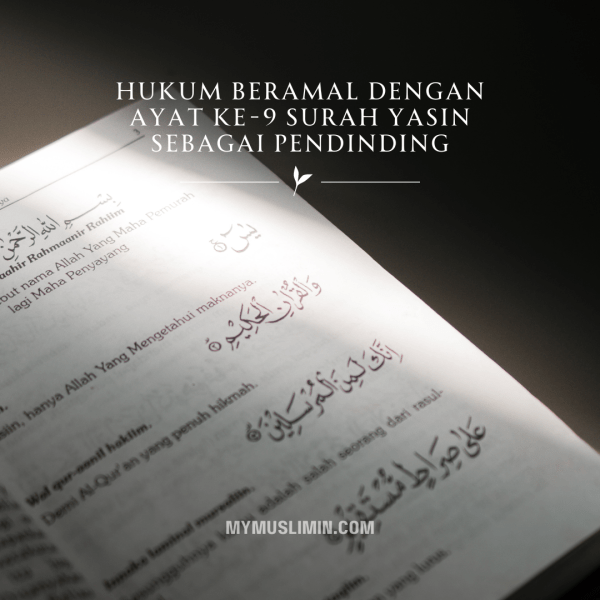 HUKUM BERAMAL DENGAN
AYAT KE-9 SURAH YASIN
SEBAGAI PENDINDING
بِسْمِ اللَّهِ الرَّحْمَنِ
Rahmaanir Rahiim
nama Allah Yang Maha Pemurah
lagi Maha Penyayang
يٰسٓ
hanya Allah Yang Mengetahui maknanya.
وَالْقُرْاٰنِ الْحَكِيْمِ
Wal qur-aanil hakiim.
Demi Al-Qur'an yang penuh hikmah.
اِنَّكَ لَمِنَ الْمُرْسَلِيْنَ
adalah salah seorang dari rasul-
عَلٰى صِرَاطٍ مُّسْتَقِيْمٍ
yang lurus.
MYMUSLIMIN.COM